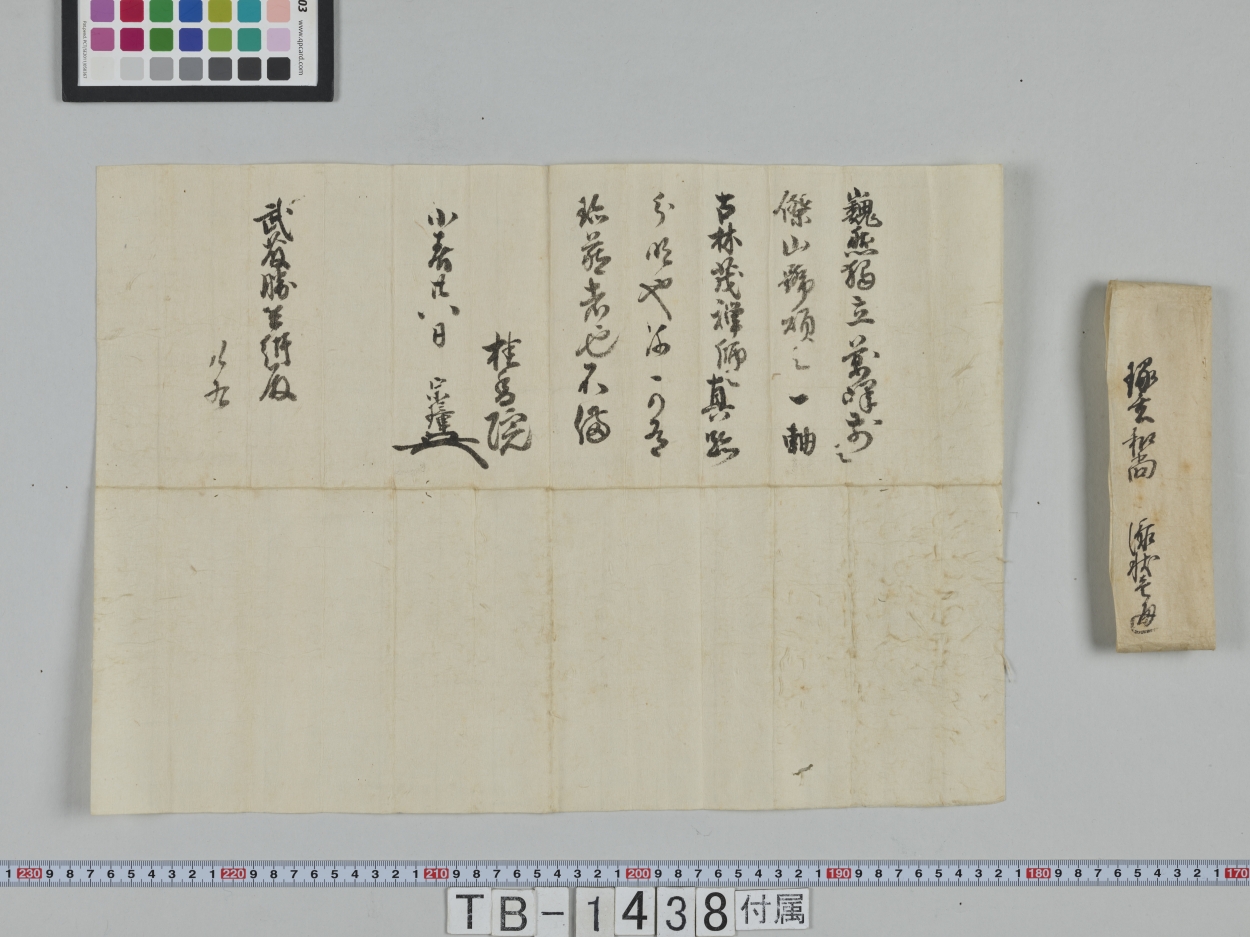 巍然独立万峰前之
傑山号頌之一軸
古林茂禅師之真跡
分明也弥可有
珍蔵者也不備
桂香院
小春廿八日 宗
武藤勝兵衛殿
以右
琢玄和尚 添状壱通
03
www.qpcard.com
1 230 9 8 7 6 5 4 3 2 1 220 9 8 7 6 5 4 3 2 1 210 9 8 7 6 5 4 3 2 1 200 9 8 7 6 5 4 3 2 1 190 9 8 7 6 5 4 3 2 1 180 9 8 7 6 5 4 3 2 1 170
TB-1438付属